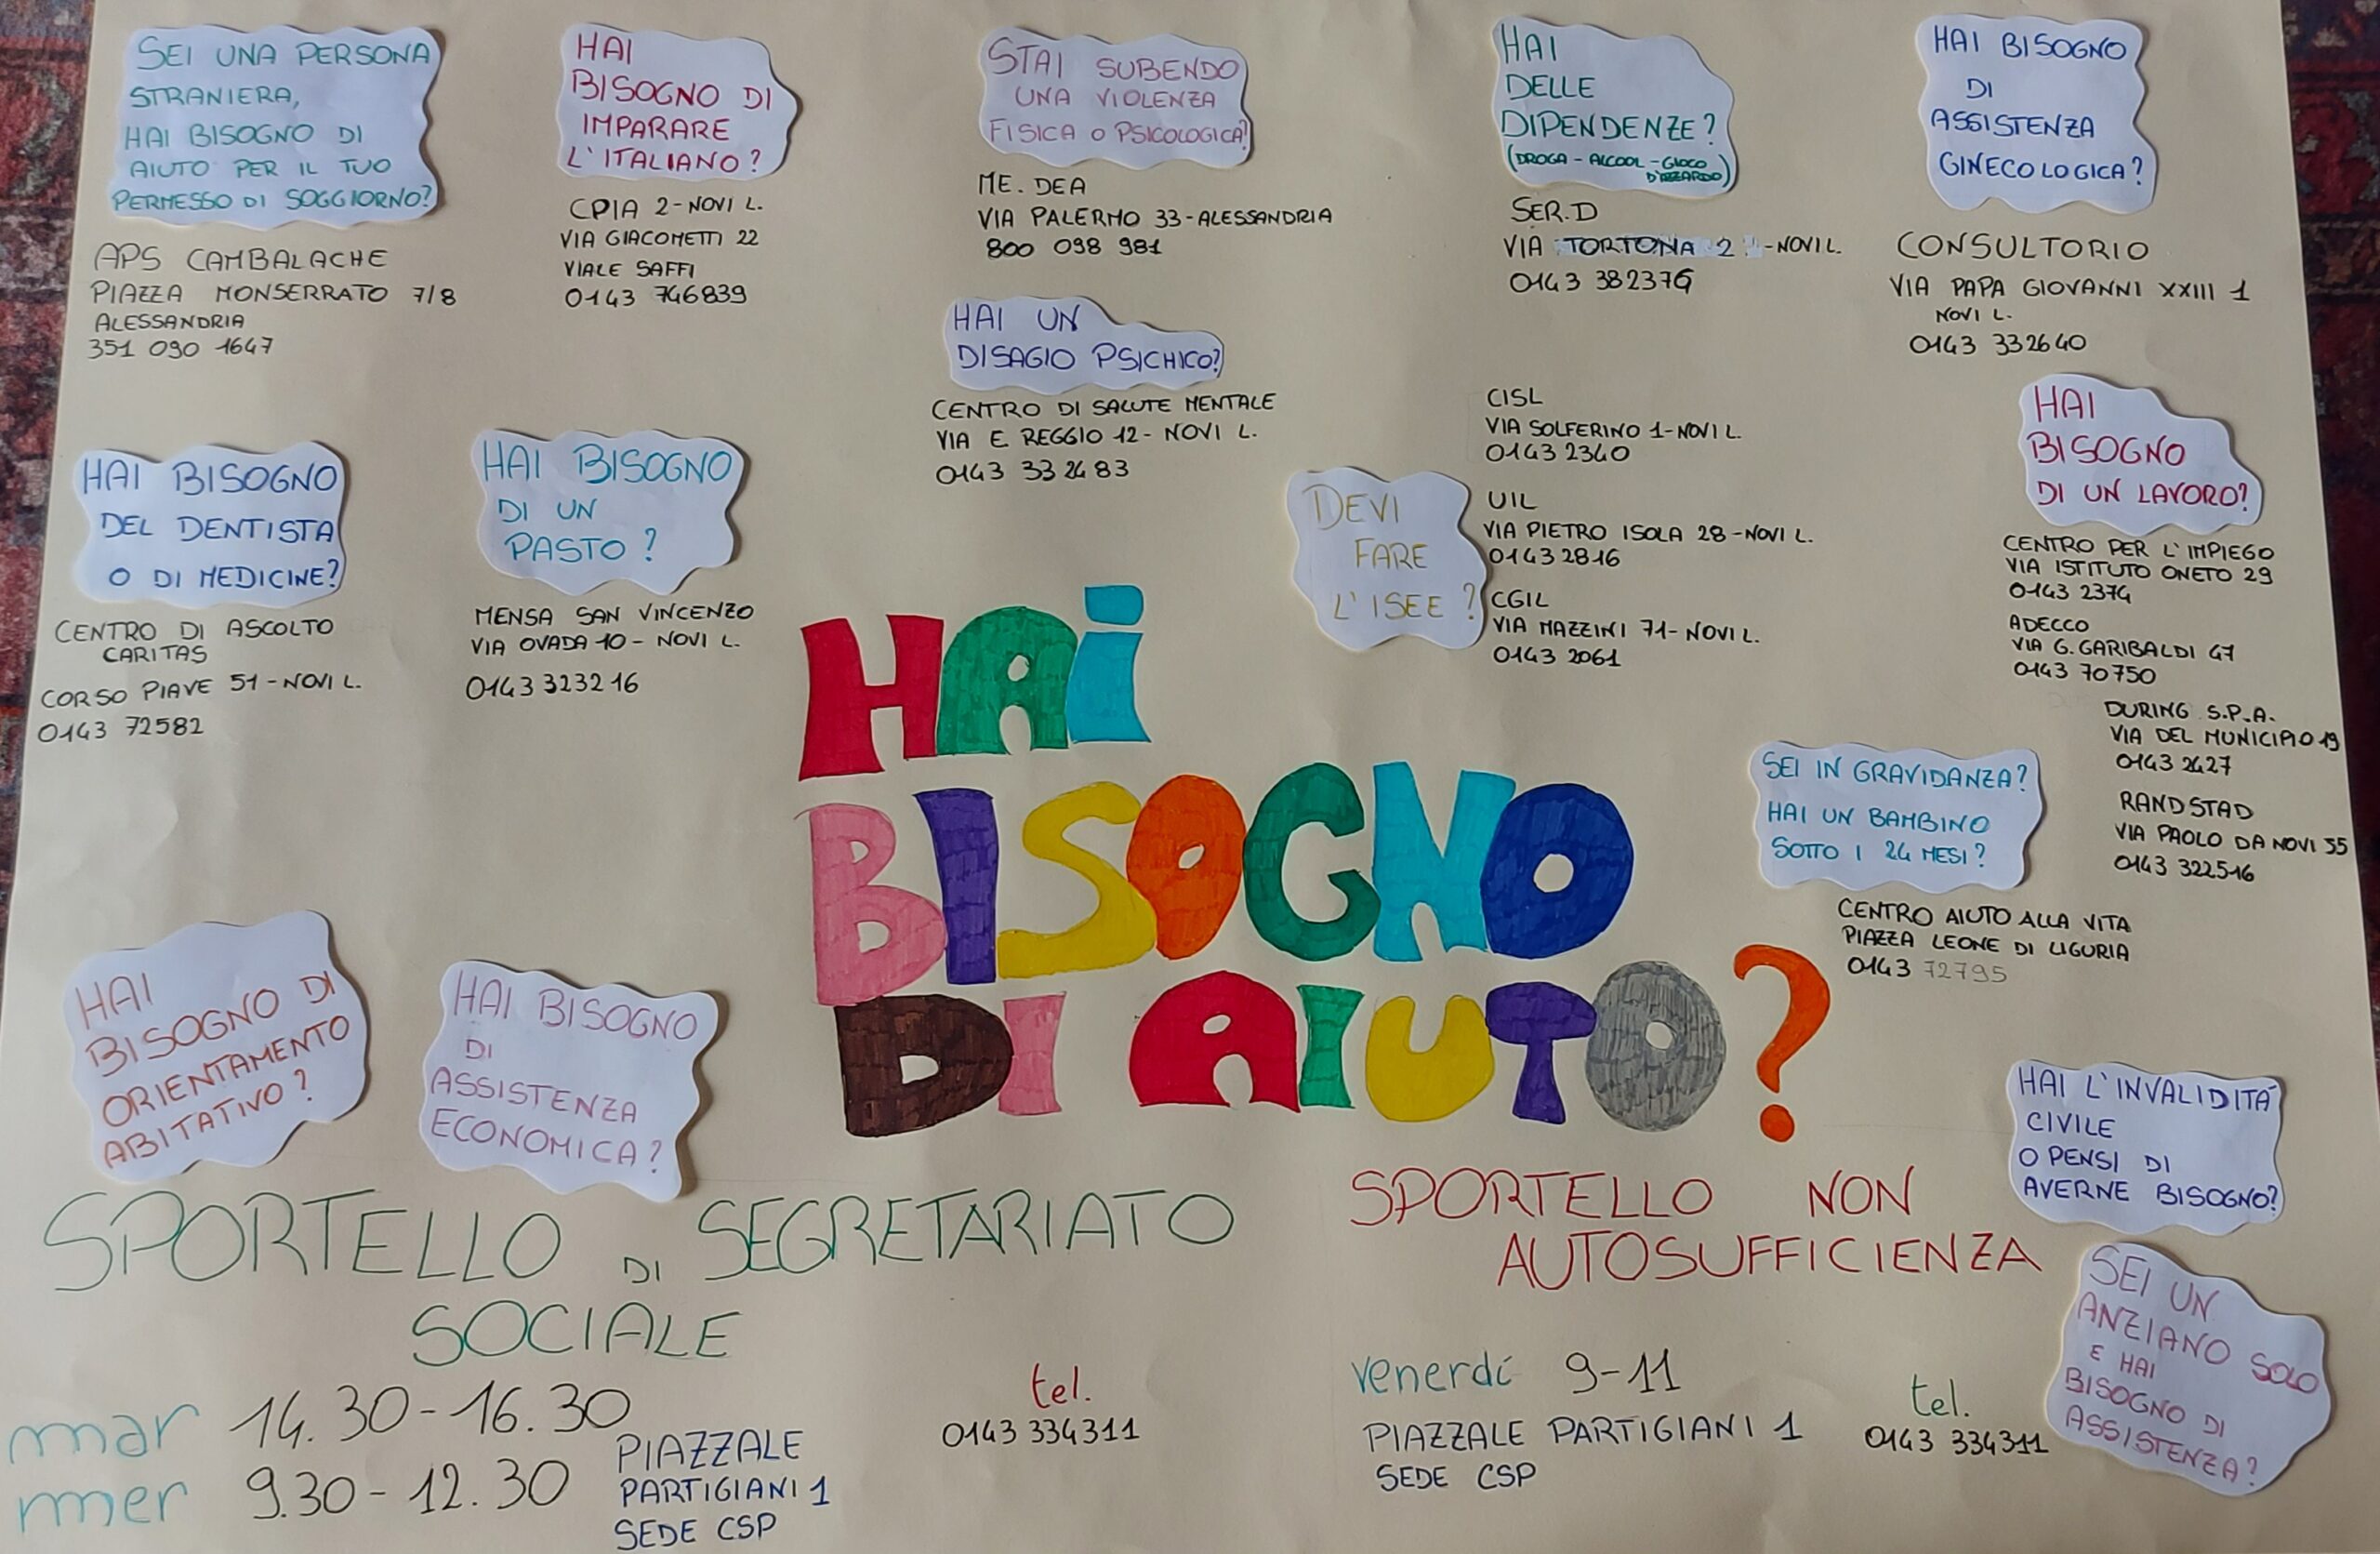 SEI UNA PERSONA
STRANIERA,
HAI BISOGNO DI
AIUTO PER IL TUO
PERMESSO DI SOGGIORNO?
APS CAMBALACHE
PIAZZA MONSERRATO 7/8
ALESSANDRIA
351 090 1647
HAI
BISOGNO DI
IMPARARE
L'ITALIANO?
CPIA 2-NOVI L.
VIA GIACOMETTI 22
VIALE SAFFI
0143 746839
STAI SUBENDO
UNA VIOLENZA
FISICA O PSICOLOGICA?
ME. DEA
VIA PALERMO 33-ALESSANDRIA
800 098 981
HAI
DELLE
DIPENDENZE?
(DROGA - ALCOOL - GIOCO
D'AZZARDO)
SER.D
VIA TORTONA 2 -NOVI L.
0143 332376
HAI BISOGNO
DI
ASSISTENZA
GINECOLOGICA?
CONSULTORIO
VIA PAPA GIOVANNI XXIII 1
NOVI L.
0143 332640
HAI UN
DISAGIO PSICHICO?
CENTRO DI SALUTE MENTALE
VIA E REGGIO 12- NOVI L.
0143 33 2483
HAI BISOGNO
DEL DENTISTA
O DI MEDICINE?
CENTRO DI ASCOLTO
CARITAS
CORSO PIAVE 51-NOVI L.
0143 72582
HAI BISOGNO
DI UN
PASTO?
MENSA SAN VINCENZO
VIA OVADA 10- NOVI L.
0143 323216
DEVI
FARE
L'ISEE?
CISL
VIA SOLFERINO 1-NOVI L.
0143 2340
UIL
VIA PIETRO ISOLA 28-NOVI L.
0143 2816
CGIL
VIA MAZZINI 71-NOVI L.
0143 2061
HAI
BISOGNO
DI UN LAVORO?
CENTRO PER L'IMPIEGO
VIA ISTITUTO ONETO 29
0143 2374
ADECCO
VIA G.GARIBALDI 47
0143 70750
DURING S.P.A.
VIA DEL MUNICIPIO 19
0143 2427
RANDSTAD
VIA PAOLO DA NOVI 35
0143 322516
SEI IN GRAVIDANZA?
HAI UN BAMBINO
SOTTO I 24 MESI?
CENTRO AIUTO ALLA VITA
PIAZZA LEONE DI LIGURIA
0143 72795
HAI
BISOGNO
DI AIUTO?
HAI
BISOGNO DI
ORIENTAMENTO
ABITATIVO?
HAI BISOGNO
DI
ASSISTENZA
ECONOMICA?
SPORTELLO DI SEGRETARIATO
SOCIALE
mar 14.30-16.30
mer 9.30-12.30
PIAZZALE
PARTIGIANI 1
SEDE CSP
tel.
0143 334311
SPORTELLO NON
AUTOSUFFICIENZA
venerdí 9-11
PIAZZALE PARTIGIANI 1
SEDE CSP
tel.
0143 334311
HAI L'INVALIDITÁ
CIVILE
O PENSI DI
AVERNE BISOGNO?
SEI UN
ANZIANO SOLO
E HAI
BISOGNO DI
ASSISTENZA?